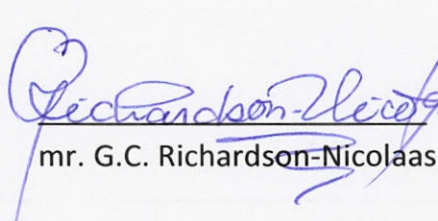 Richardson-Nicol
mr. G.C. Richardson-Nicolaas